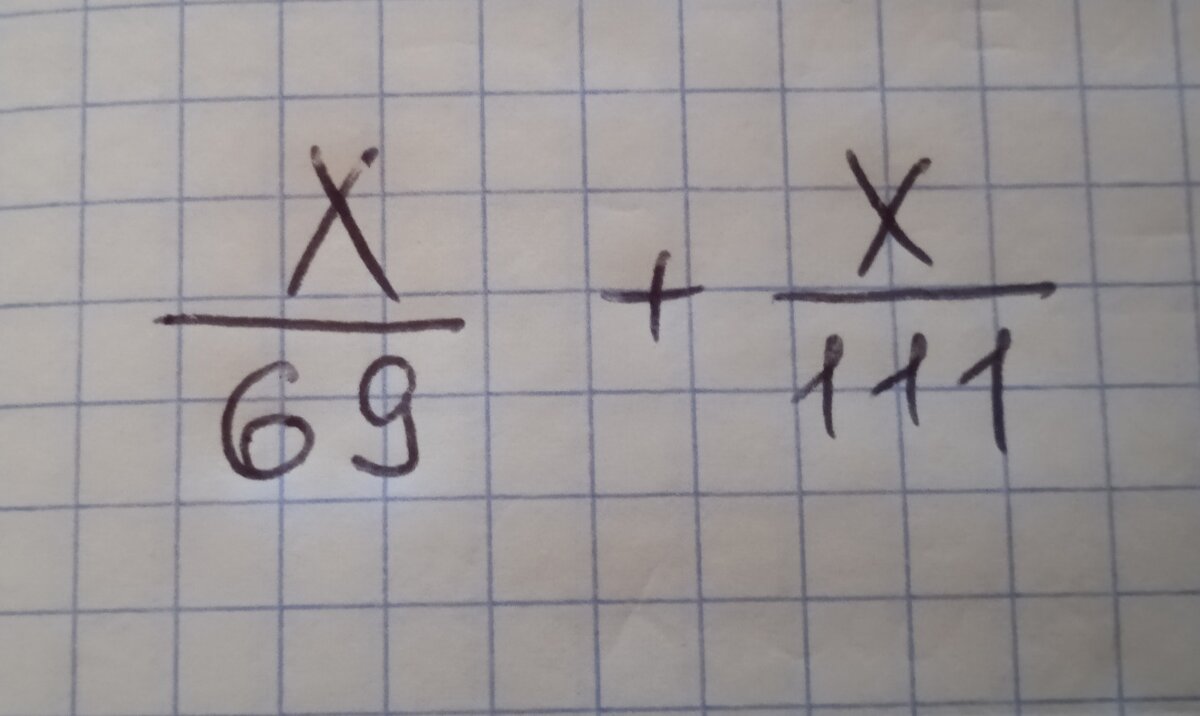 x/69 + x/111